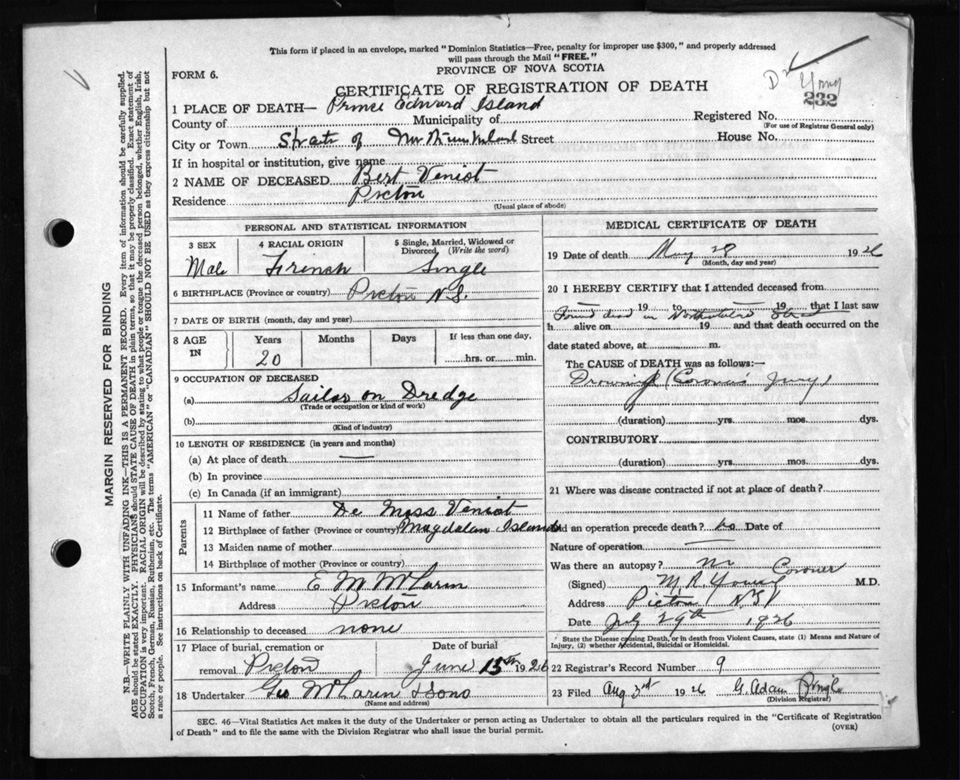 This form if placed in an envelope, marked "Dominion Statistics—Free, penalty for improper use $300," and properly addressed
will pass through the Mail "FREE."
PROVINCE OF NOVA SCOTIA
FORM 6.
CERTIFICATE OF REGISTRATION OF DEATH
232
1 PLACE OF DEATH— Prince Edward Island
County of Municipality of Registered No.
(For use of Registrar General only)
City or Town Strait of Street House No.
If in hospital or institution, give name
2 NAME OF DECEASED Bert Veniot
Residence Pictou
(Usual place of abode)
PERSONAL AND STATISTICAL INFORMATION
3 SEX 4 RACIAL ORIGIN 5 Single, Married, Widowed or Divorced. (Write the word)
Male French Single
6 BIRTHPLACE (Province or country) Pictou N.S.
7 DATE OF BIRTH (month, day and year)
8 AGE IN Years Months Days If less than one day,
20 hrs. or min.
9 OCCUPATION OF DECEASED
(a) Sailor on Dredge
(Trade or occupation or kind of work)
(b)
(Kind of industry)
10 LENGTH OF RESIDENCE (in years and months)
(a) At place of death —
(b) In province
(c) In Canada (if an immigrant)
Parents
11 Name of father De Moss Veniot
12 Birthplace of father (Province or country) Magdalan Islands
13 Maiden name of mother
14 Birthplace of mother (Province or country)
15 Informant's name E M McLaren
Address Pictou
16 Relationship to deceased none
17 Place of burial, cremation or removal Pictou Date of burial June 15th 1926
18 Undertaker Geo McLaren & Sons
(Name and address)
MEDICAL CERTIFICATE OF DEATH
19 Date of death May 28 1926
(Month, day and year)
20 I HEREBY CERTIFY that I attended deceased from
— 19 to — 19 that I last saw
Found dead in Northumberland Strait
h alive on 19 and that death occurred on the
date stated above, at m.
The CAUSE of DEATH was as follows:—
Drowning (Coroner's Jury)
(duration) yrs. mos. dys.
CONTRIBUTORY
(duration) yrs. mos. dys.
21 Where was disease contracted if not at place of death?
Did an operation precede death? no Date of
Nature of operation —
Was there an autopsy? no
Coroner
(Signed) M. R. Young M.D.
Address Pictou N.S.
Date July 29th 1926
State the Disease causing Death, or in death from Violent Causes, state (1) Means and Nature of
Injury, (2) whether Accidental, Suicidal or Homicidal.
22 Registrar's Record Number 9
23 Filed Aug 3rd 1926 G. Adam
(Division Registrar)
SEC. 46—Vital Statistics Act makes it the duty of the Undertaker or person acting as Undertaker to obtain all the particulars required in the "Certificate of Registration
of Death" and to file the same with the Division Registrar who shall issue the burial permit.
(OVER)
MARGIN RESERVED FOR BINDING
N.B.—WRITE PLAINLY WITH UNFADING INK—THIS IS A PERMANENT RECORD. Every item of information should be carefully supplied.
AGE should be stated EXACTLY. PHYSICIANS should STATE CAUSE OF DEATH in plain terms, so that it may be properly classified. Exact statement of
OCCUPATION is very important. RACIAL ORIGIN will be described by stating to what people or tongue the deceased person belonged, whether English, Irish,
Scotch, French, German, Russian, Ruthenian, etc. The terms "AMERICAN" or "CANADIAN" SHOULD NOT BE USED as they express citizenship but not
a race or people. See instructions on back of Certificate.